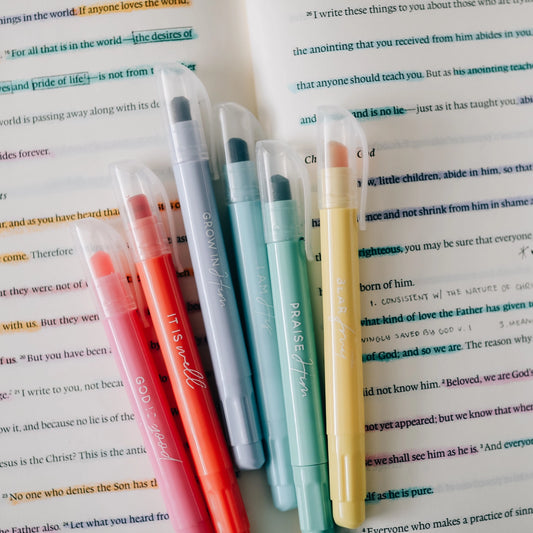 things in the world. If anyone loves the world,
¹⁶ For all that is in the world—the desires of
eyes and pride of life]—is not from th
world is passing away along with its de
abides forever.
ar, and as you have heard tha
come. Therefore
that they were not of
with us. But they wen
of us. ²⁰ But you have been
²¹ I write to you, not becau
ow it, and because no lie is of the
Jesus is the Christ? This is the antic
²³ No one who denies the Son has th
the Father also. ²⁴ Let what you heard from
²⁶ I write these things to you about those who are tryin
the anointing that you received from him abides in you,
that anyone should teach you. But as his anointing teache
and is no lie—just as it has taught you, abi
Chi God
ow, little children, abide in him, so that
dence and not shrink from him in shame a
righteous, you may be sure that everyone
born of him.
1. CONSISTENT W/ THE NATURE OF CHR
what kind of love the Father has given to
INGLY SAVED BY GOD V. 1
3. MEAN
of God; and so we are. The reason why
did not know him. ² Beloved, we are God's
not yet appeared; but we know that when
we shall see him as he is. ³ And everyone
self as he is pure.
⁴ Everyone who makes a practice of sinn
GOD IS good
IT IS well
GROW IN Him
I AM His
PRAISE Him
BEAR fruit